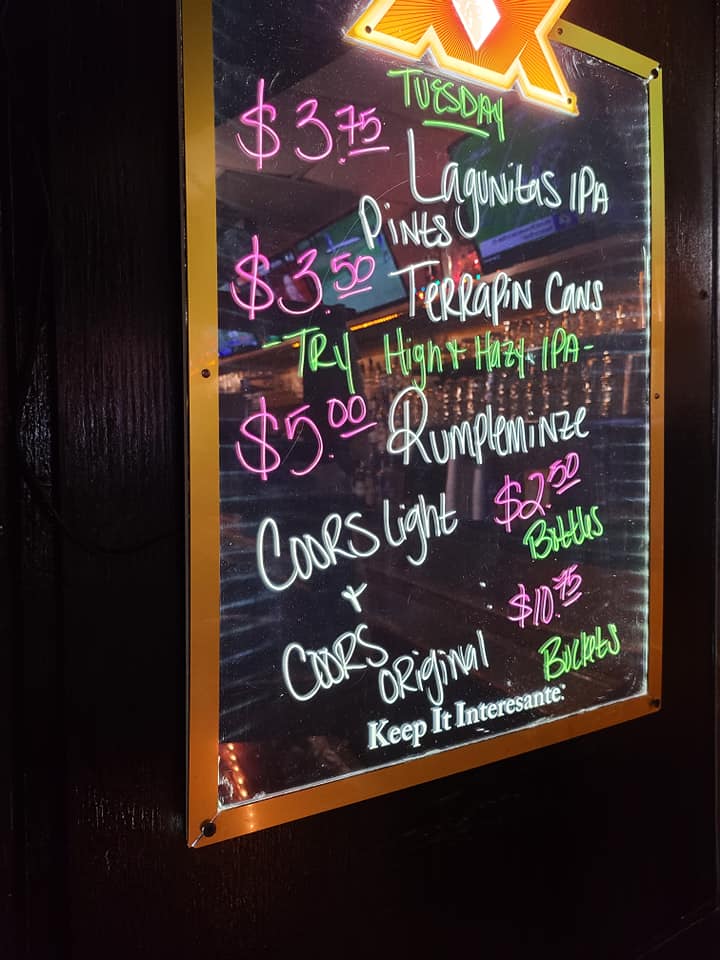 XX
TUESDAY
$3.75 Lagunitas IPA
Pints
$3.50 TERRAPIN CANS
TRY High & Hazy IPA-
$5.00 Rumpleminze
COORS Light $2.50
Bottles
&
$10.75
COORS ORiginal Buckets
Keep It Interesante.